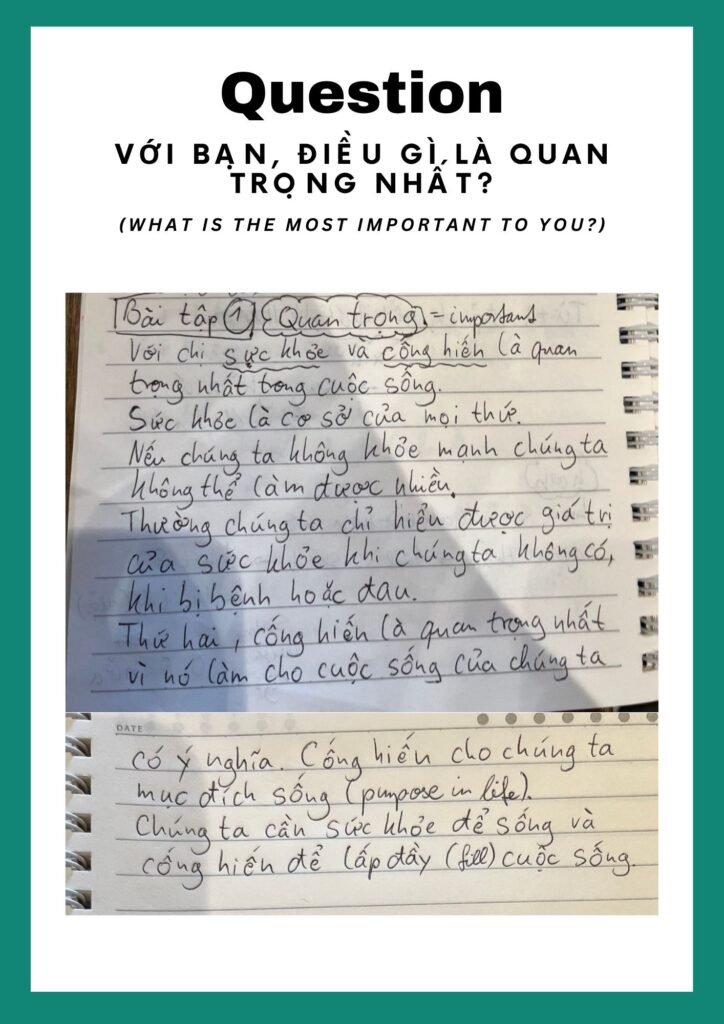 Question
VỚI BẠN, ĐIỀU GÌ LÀ QUAN
TRỌNG NHẤT?
(WHAT IS THE MOST IMPORTANT TO YOU?)
Bài tập 1 Quan trọng = important
Với chị sực khỏe và cống hiến là quan
trọng nhất trong cuộc sống.
Sức khỏe là cơ sở của mọi thứ.
Nếu chúng ta không khỏe mạnh chúng ta
không thể làm được nhiều.
Thường chúng ta chỉ hiểu được giá trị
của sức khỏe khi chúng ta không có,
khi bị bệnh hoặc đau.
Thứ hai, cống hiến là quan trọng nhất
vì nó làm cho cuộc sống của chúng ta
DATE
có ý nghĩa. Cống hiến cho chúng ta
mục đích sống (purpose in life).
Chúng ta cần sức khỏe để sống và
cống hiến để lấp đầy (fill) cuộc sống.